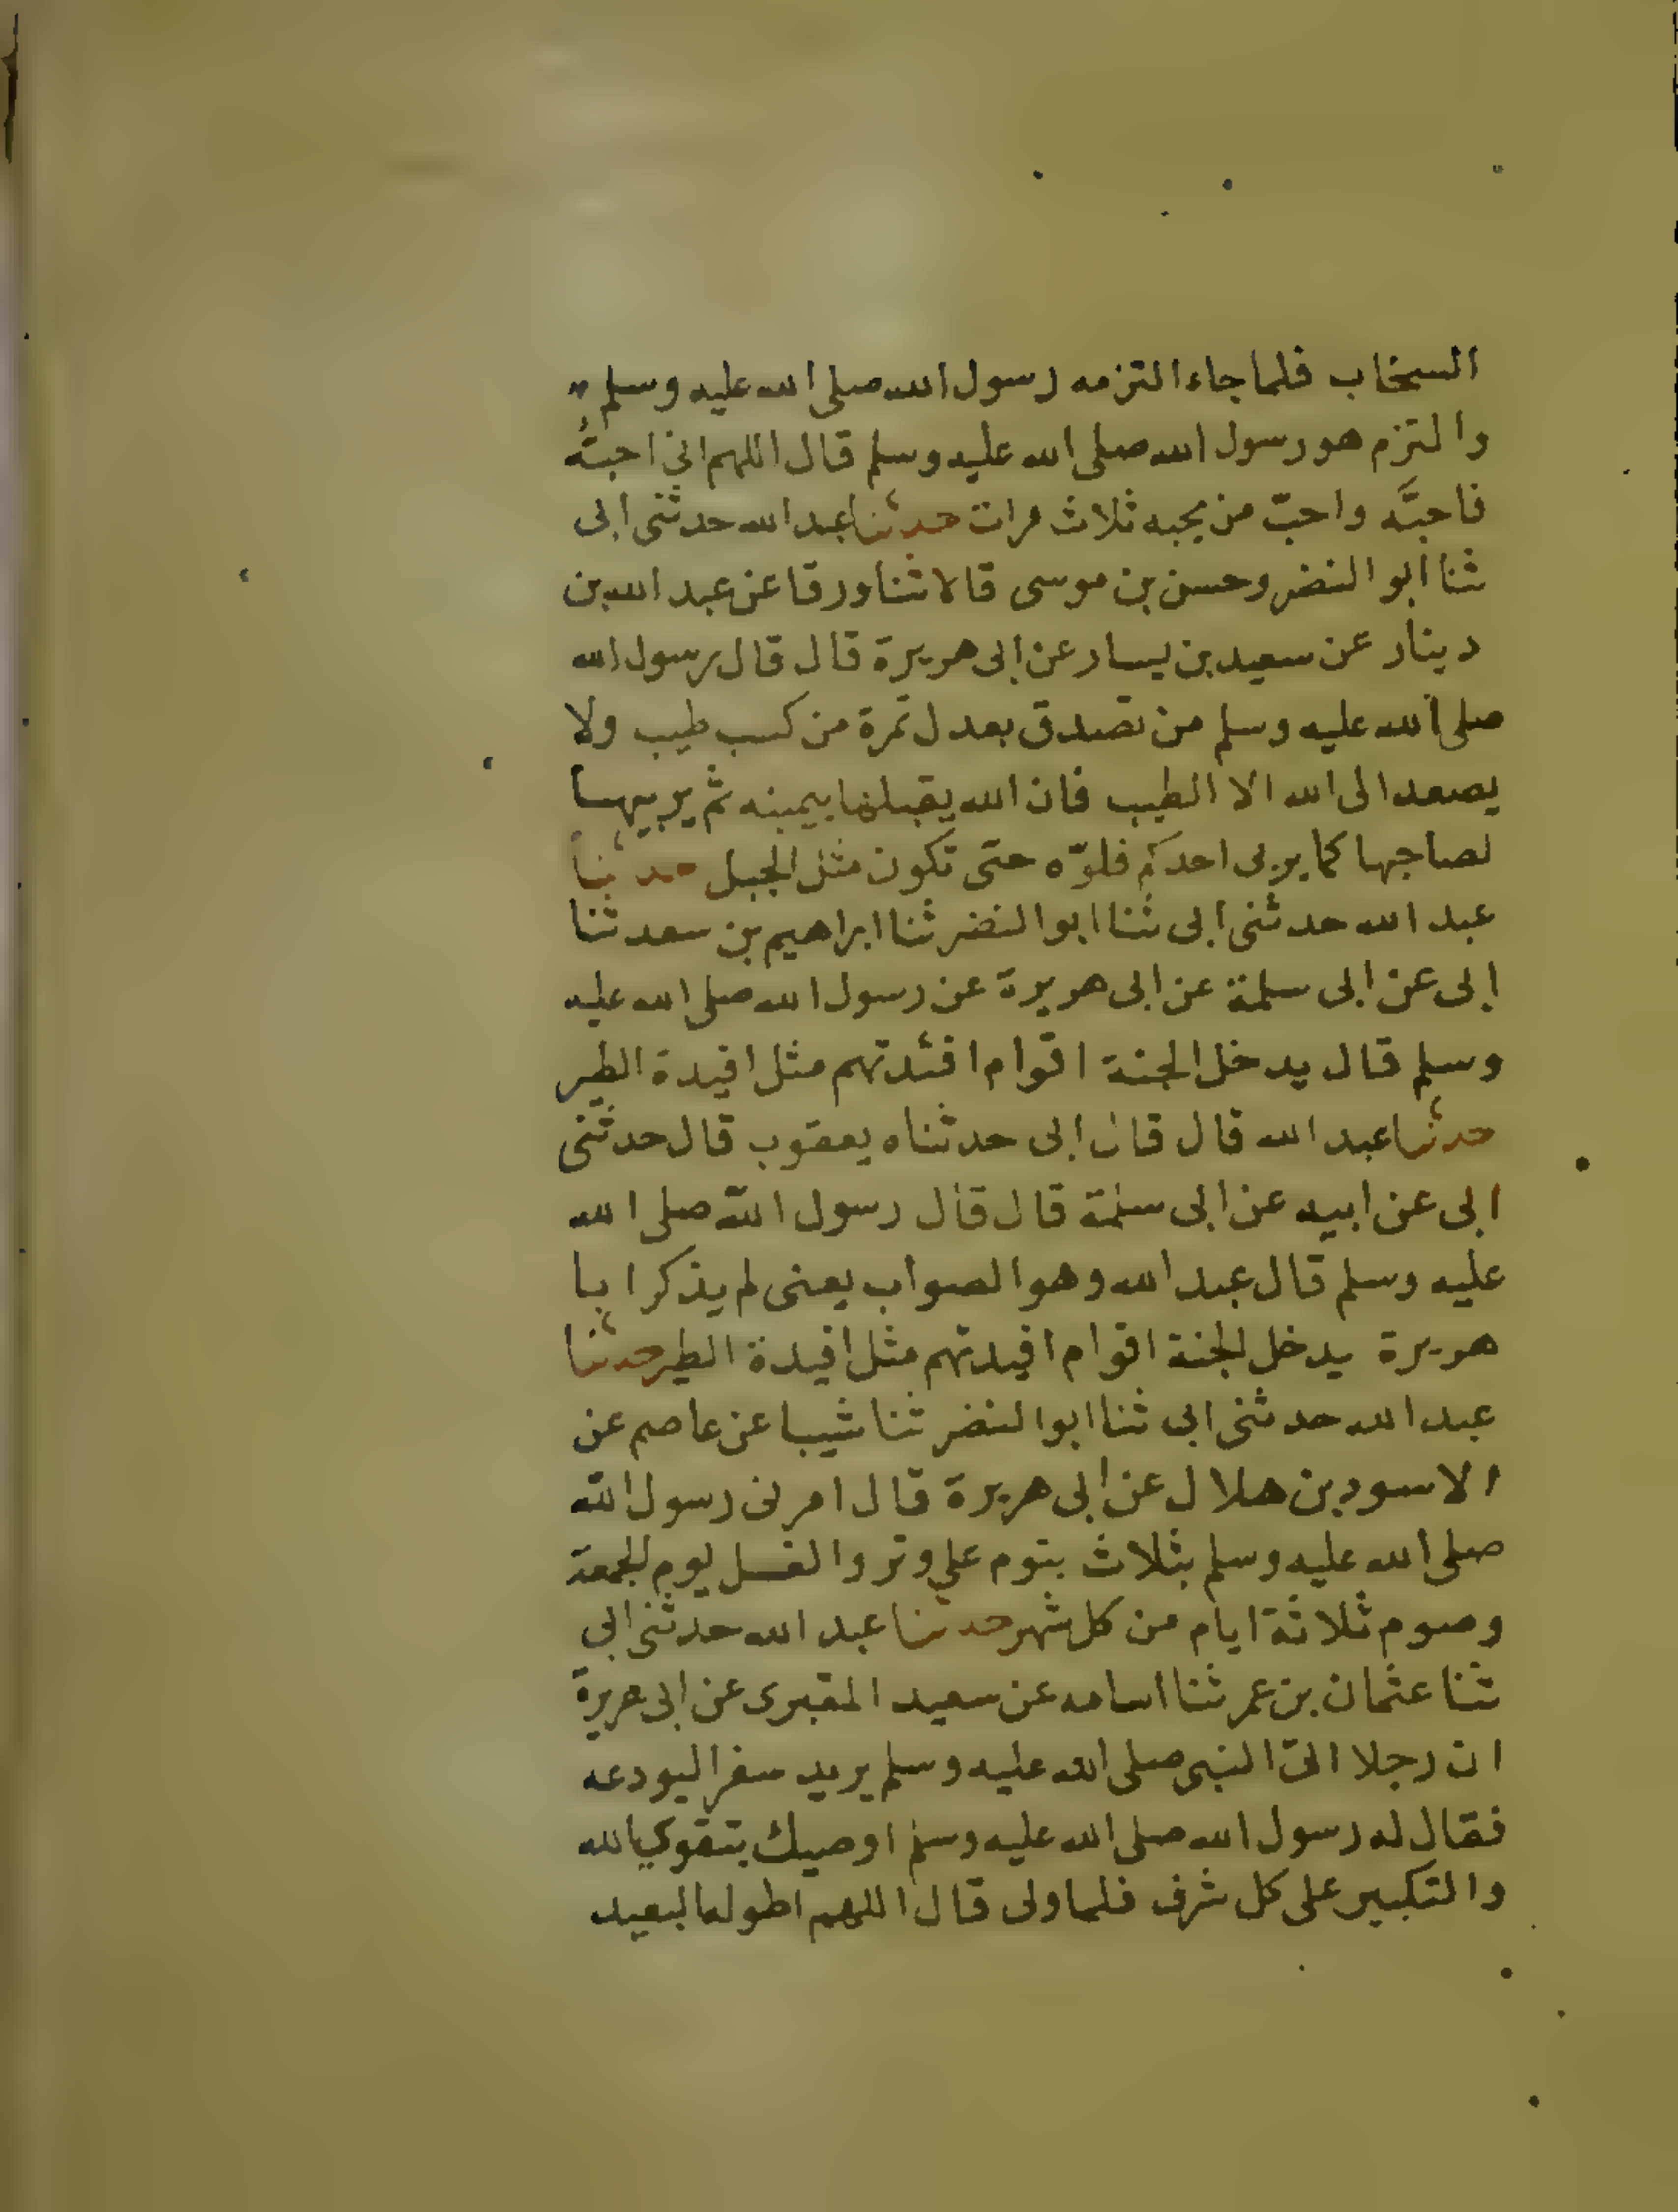 السخاب فلما جاء التزمه رسول الله صلى الله عليه وسلم
والتزم هو رسول الله صلى الله عليه وسلم قال اللهم انى احبهُ
فاحبَّه واحبّ من يحبه ثلاث مرات حدثنا عبد الله حدثنى ابى
ثنا ابو النضر وحسن بن موسى قالا ثنا ورقا عن عبد الله بن
دينار عن سعيد بن يسار عن ابى هريرة قال قال رسول الله
صلى الله عليه وسلم من تصدق بعدل تمرة من كسب طيب ولا
يصعد الى الله الا الطيب فان الله يقبلها بيمينه ثم يربيها
لصاحبها كما يربى احدكم فلوّه حتى تكون مثل الجبل حدثنا
عبد الله حدثنى ابى ثنا ابو النضر ثنا ابراهيم بن سعد ثنا
ابى عن ابى سلمة عن ابى هريرة عن رسول الله صلى الله عليه
وسلم قال يدخل الجنة اقوام افئدتهم مثل افيدة الطير
حدثنا عبد الله قال قال ابى حدثناه يعقوب قال حدثنى
ابى عن ابيه عن ابى سلمة قال قال رسول الله صلى الله
عليه وسلم قال عبد الله وهو الصواب يعنى لم يذكر ابا
هريرة يدخل الجنة اقوام افيدتهم مثل افيدة الطير حدثنا
عبد الله حدثنى ابى ثنا ابو النضر ثنا شيبا عن عاصم عن
الاسود بن هلال عن ابى هريرة قال امرنى رسول الله
صلى الله عليه وسلم بثلاث بنوم على وتر والغسل يوم الجمعة
وصوم ثلاثة ايام من كل شهر حدثنا عبد الله حدثنى ابى
ثنا عثمان بن عمر ثنا اسامه عن سعيد المقبرى عن ابى هريرة
ان رجلا اتى النبى صلى الله عليه وسلم يريد سفرا ليودعه
فقال له رسول الله صلى الله عليه وسلم اوصيك بتقوى الله
والتكبير على كل شرف فلما ولى قال اللهم اطو له البعيد